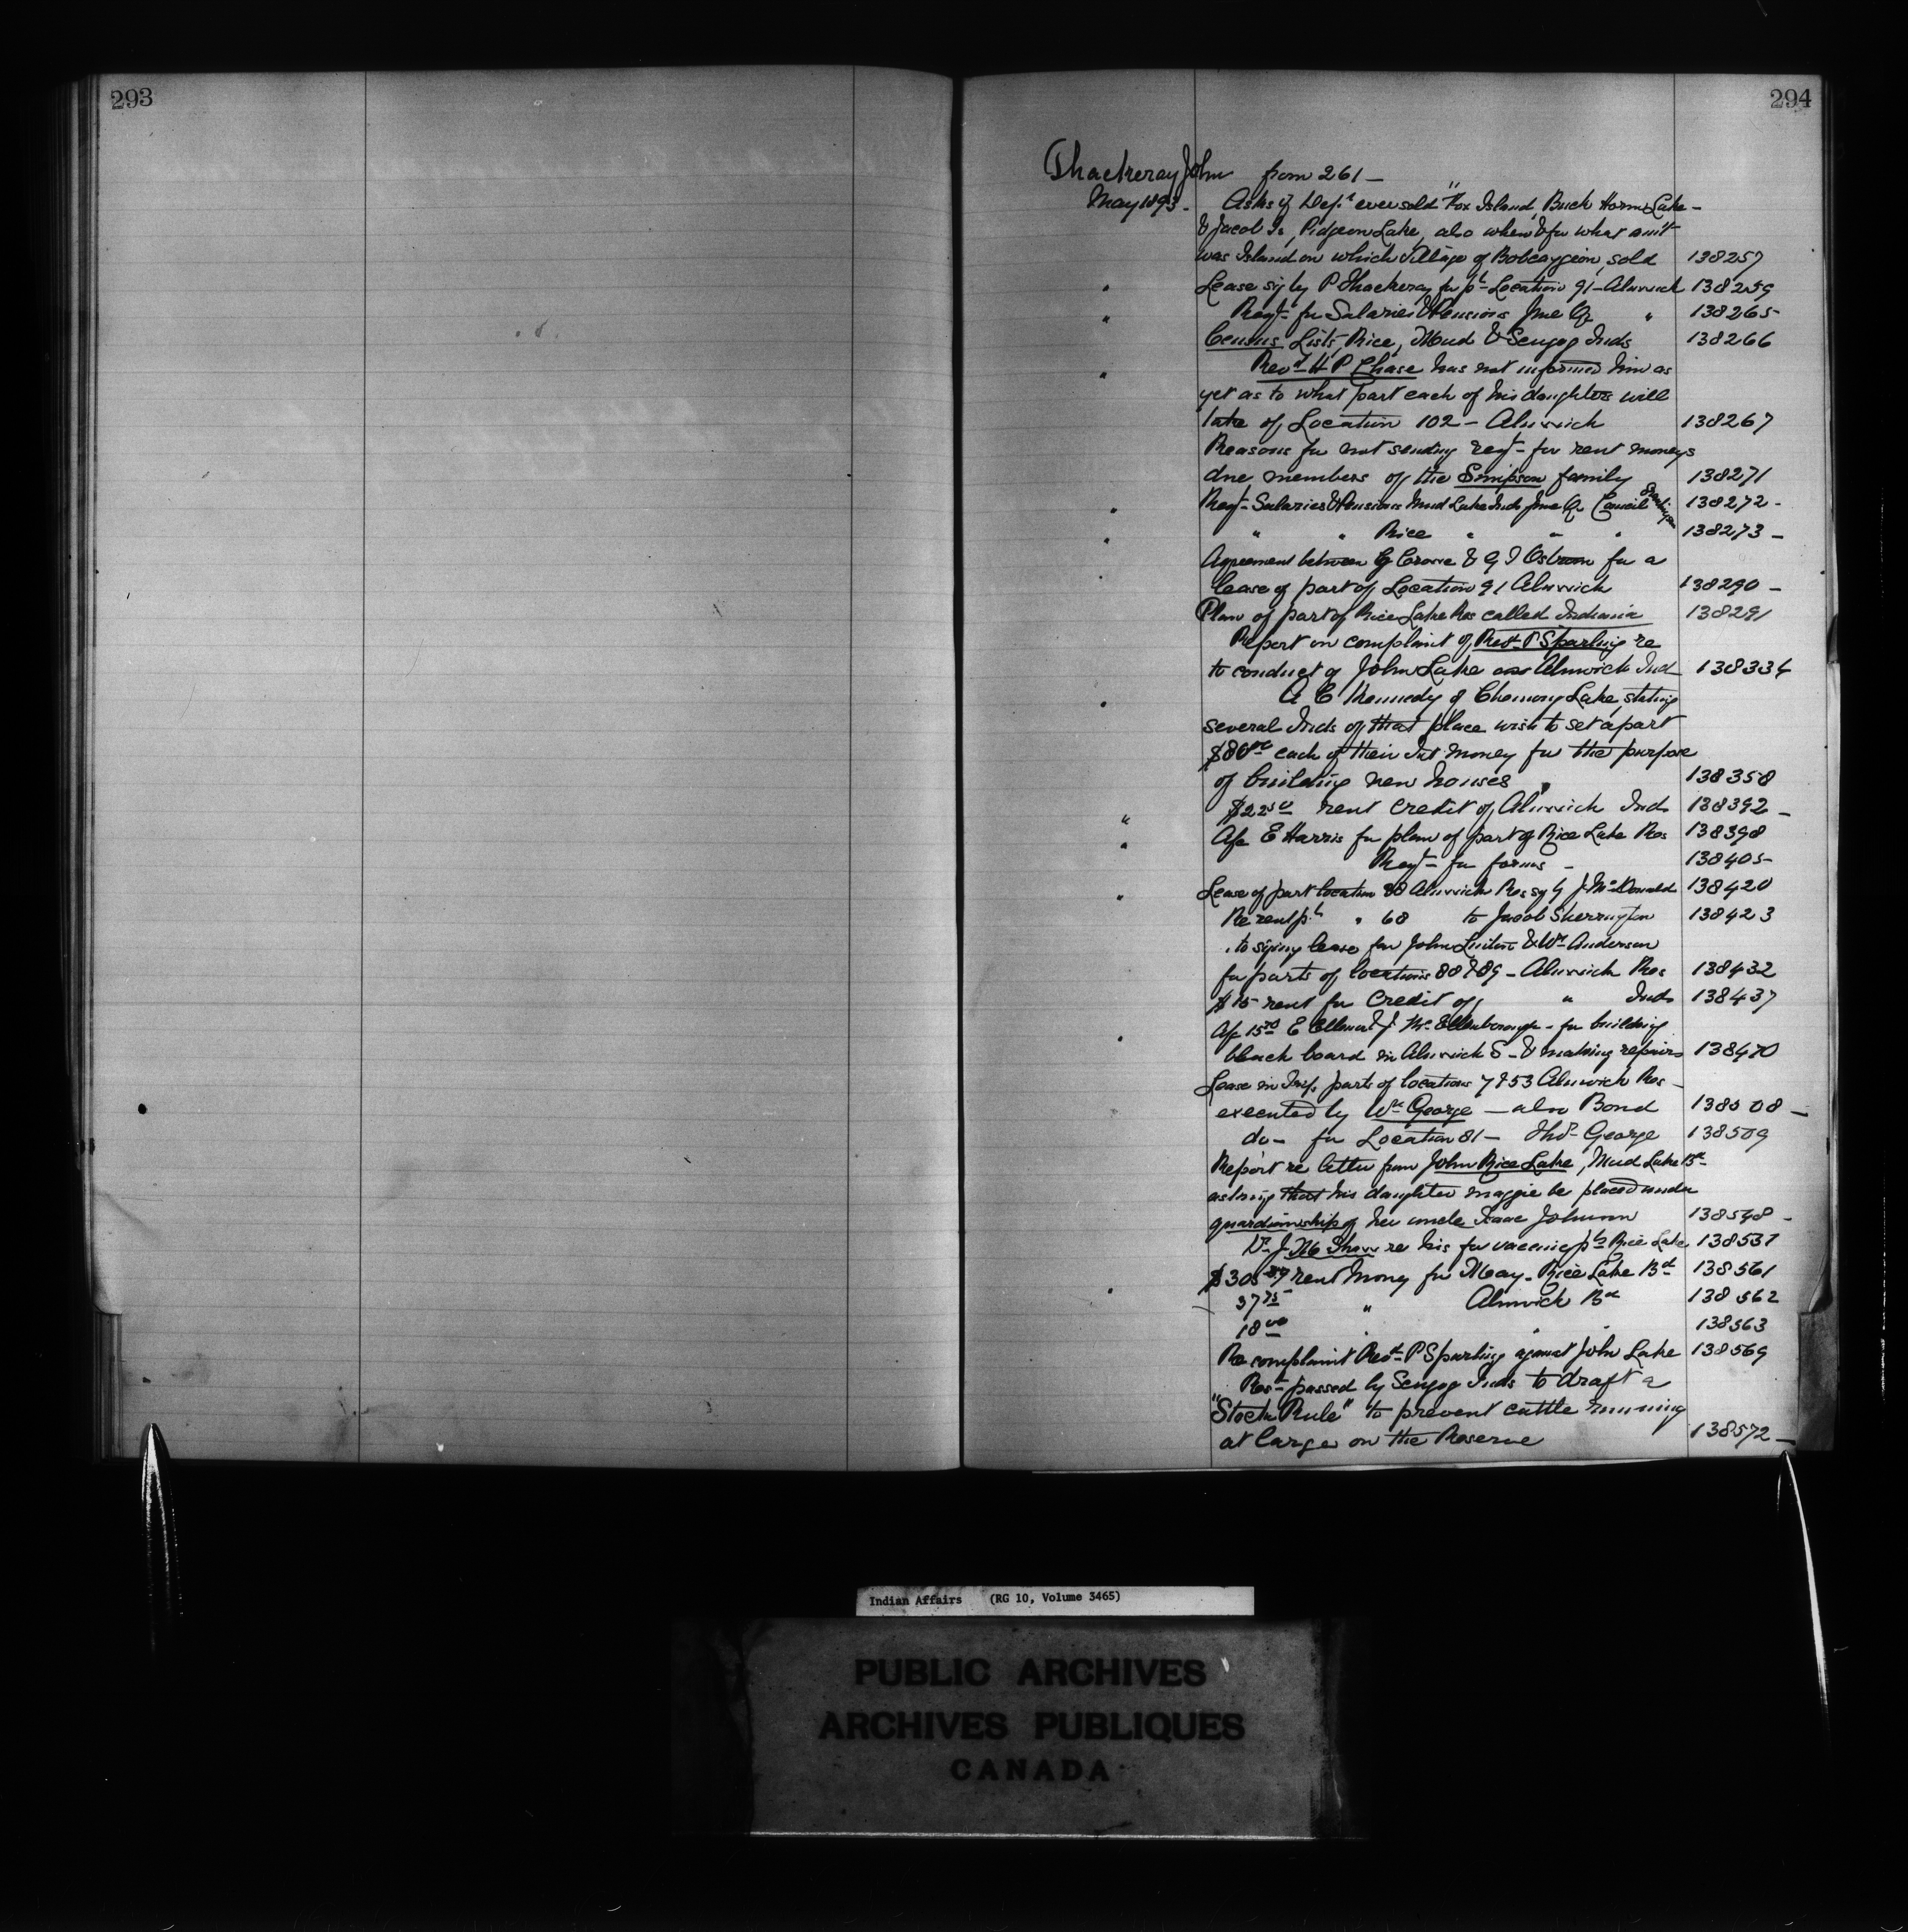 293
294
Thackeray John from 261 —
May 1893 - Asks if Dept ever sold "Fox Island, Buck Horn Lake -
& Jacob Is, Pidgeon Lake, also when & for what amt
was Island on which Village of Bobcaygeon, sold 138257
" Lease sig by P Thackeray for pt Location 91 - Alnwick 138259
" Reqt for Salaries & Pensions June Qr " 138265
Census Lists, Rice, Mud & Scugog Inds 138266
" Revd H P Chase has not informed him as
yet as to what part each of his daughters will
take of Location 102 - Alnwick 138267
Reasons for not sending reqt - for rent moneys
due members of the Simpson family 138271
" Reqt - Salaries & Pensions Mud Lake Inds June Qr Council 138272 -
" " " Rice " " " 138273 -
Agreement between G Crowe & G I Osborne for a
" lease of part of Location 91 Alnwick 138290 -
Plan of part of Rice Lake Res called Indiania 138291
Report on complaint of Revd P Sparling re
to conduct of John Lake an Alnwick Ind 138334
" A E Kennedy of Chemong Lake, stating
several Inds of that place wish to set apart
$80 00 each of their Int money for the purpose
of building new houses 138358
" $22 50 rent credit of Alnwick Inds 138392 -
" A/c E Harris for plan of part of Rice Lake Res 138398
Reqt - for forms - 138405
" Lease of part location 88 Alnwick Res sig by J McDonald 138420
Re rent pt " 68 to Jacob Sherrington 138423
" to signing lease for John & Wm Anderson
for parts of locations 88 & 89 - Alnwick Res 138432
$15 - rent for Credit of " Inds 138437
A/c 15 00 E & J McEllenborough - for building
" black board in Alnwick S - & making repairs 138470
Lease in Trip, parts of locations 7 & 53 Alnwick Res -
executed by Wm George - also Bond 138508 -
do - for Location 81 - Thos George 138509
Report re letter from John Rice Lake, Mud Lake Bd
asking that his daughter Maggie be placed under
guardianship of her uncle Isaac Johnson 138548 -
Dr J. M Shaw re his for vaccing pts Rice Lake 138537
" $305 87 rent money for May - Rice Lake Bd 138561
37 75 " Alnwick Bd 138562
18 00 " " " 138563
Re complaint Revd P Sparling against John Lake 138569
Rest passed by Scugog Inds to draft a
"Stock Rule" to prevent cattle running
at large on the Reserve 138572 -
Indian Affairs (RG 10, Volume 3465)
PUBLIC ARCHIVES
ARCHIVES PUBLIQUES
CANADA